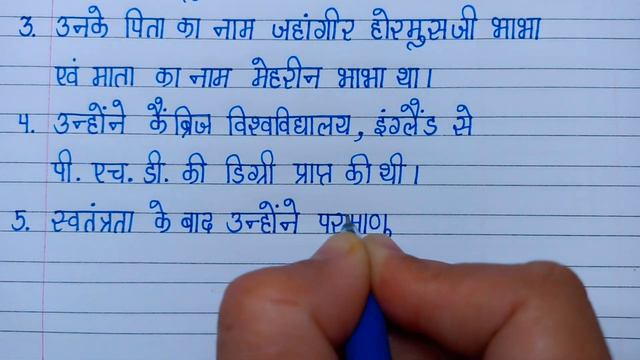 3. उनके पिता का नाम जहांगीर होरमुसजी भाभा
एवं माता का नाम मेहरीन भाभा था।
4. उन्होंने कैंब्रिज विश्वविद्यालय, इंग्लैंड से
पी. एच. डी. की डिग्री प्राप्त की थी।
5. स्वतंत्रता के बाद उन्होंने परमाणु